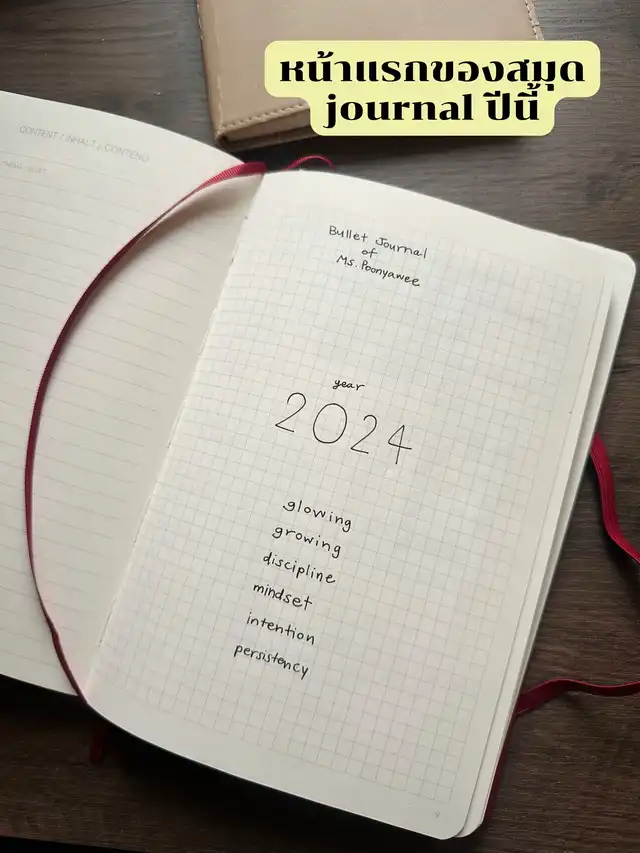 หน้าแรกของสมุด
journal ปีนี้
CONTENT / INHALT / CONTENU
Bullet Journal
of
Ms. Poonyawee
year
2024
glowing
growing
discipline
mindset
intention
persistency